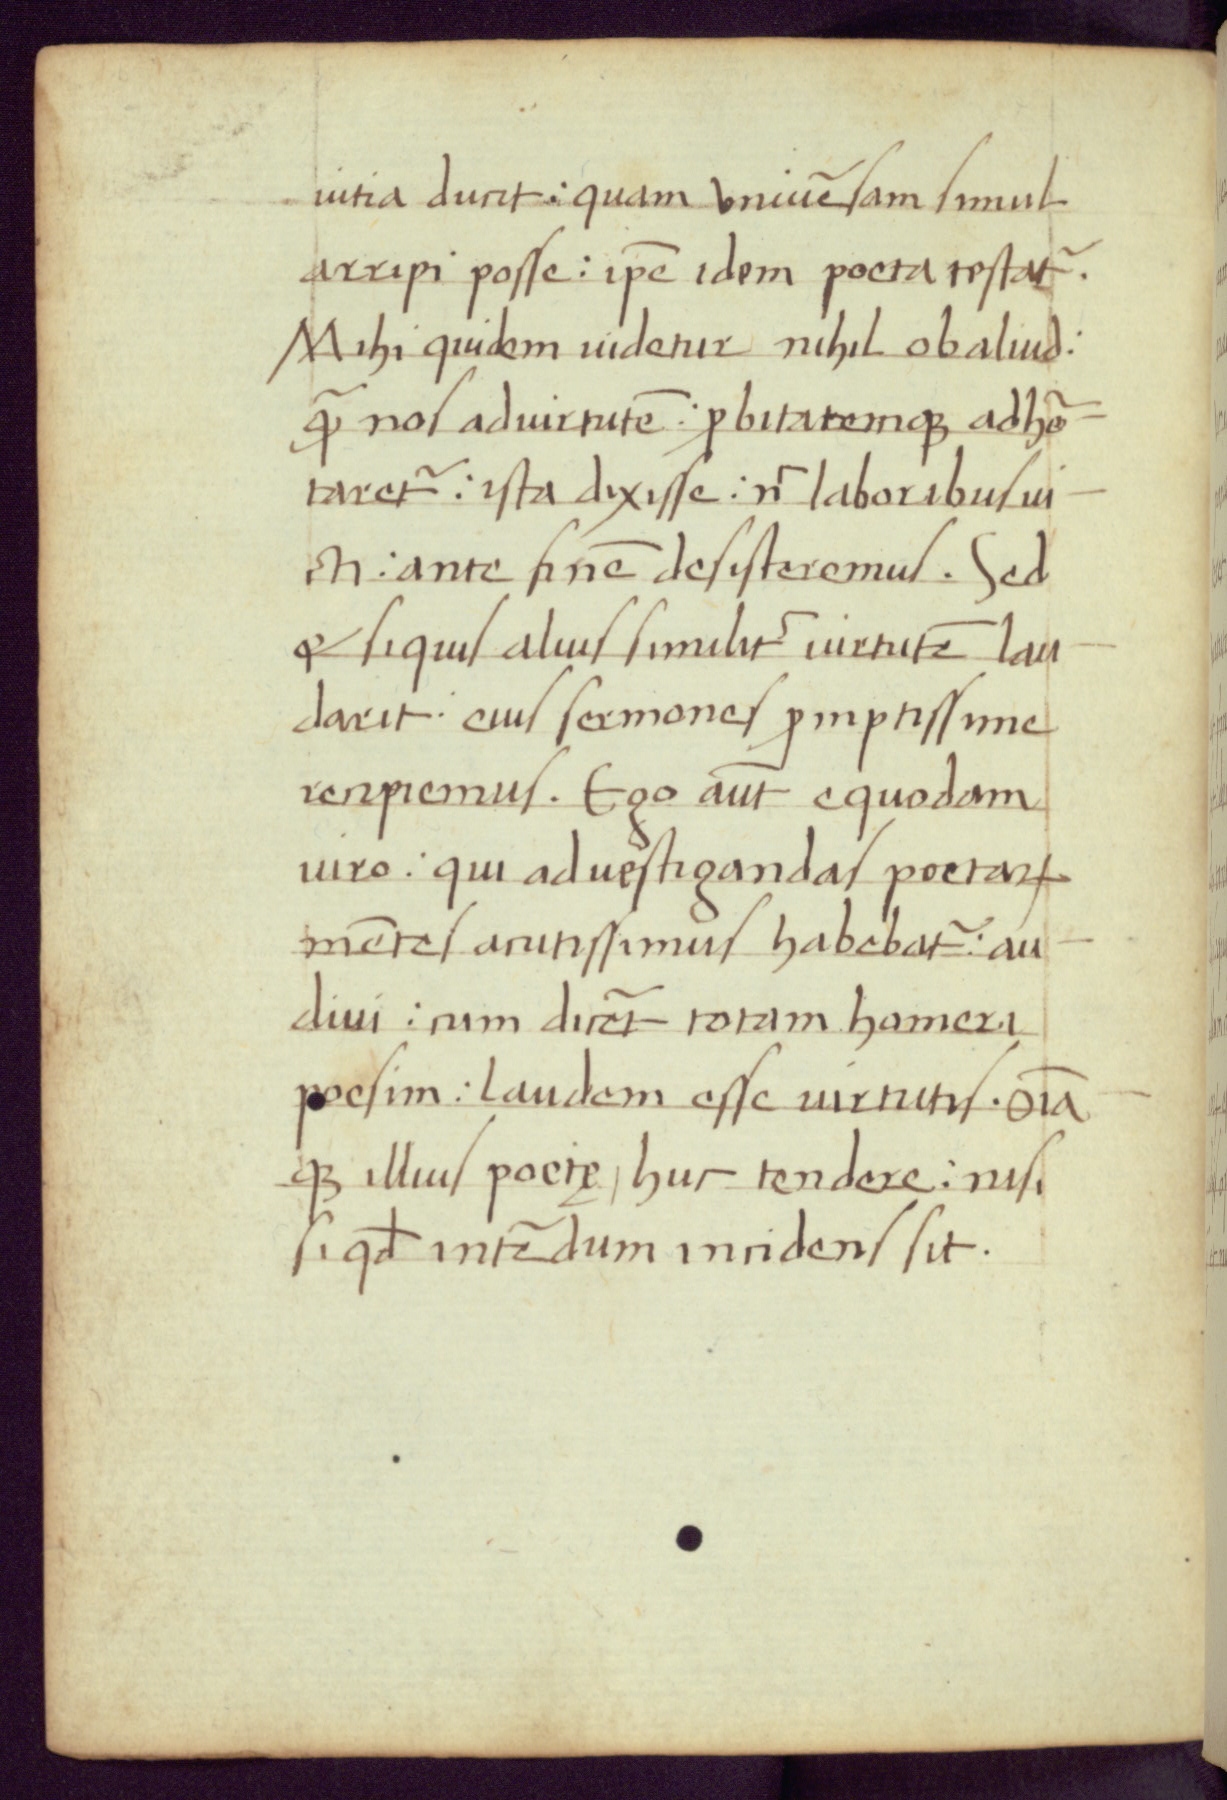 uitia ducit: quam vniuẽsam simul
arripi posse: ip̃e idem poeta testat᷉.
Mihi quidem uidetur nihil ob aliud:
q̃ nos ad uirtutẽ: ꝓbitatemqꝫ adhõ=
taret᷉: ista dixisse: ñ laboribus ui-
cti: ante finẽ desisteremus. Sed
& si quis alius similit᷉ uirtutẽ lau-
darit: eius sermones ꝓmptissime
recipiemus. Ego aut̃ equodam
uiro: qui ad uestigandas poetaꝝ
mẽtes acutissimus habebat᷉: au-
diui: cum dicẽt totam homeri
poesim: laudem esse uirtutis. Oĩa-
qꝫ illius poetę, huc tendere: nisi
si qđ intẽdum incidens sit.